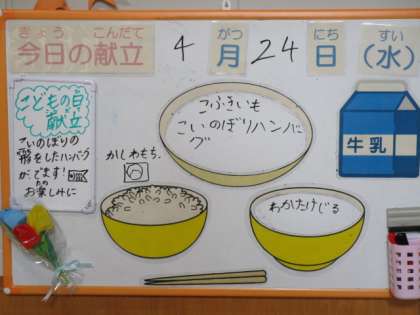 きょう こんだて がつ にち すい
今日の献立 4月24日(水)
こどもの日
献立
こいのぼりの
形をしたハンバーグ
が、でます!
お楽しみに
かしわもち。
こふきいも
こいのぼりハンバーグ
わかたけじる
牛乳